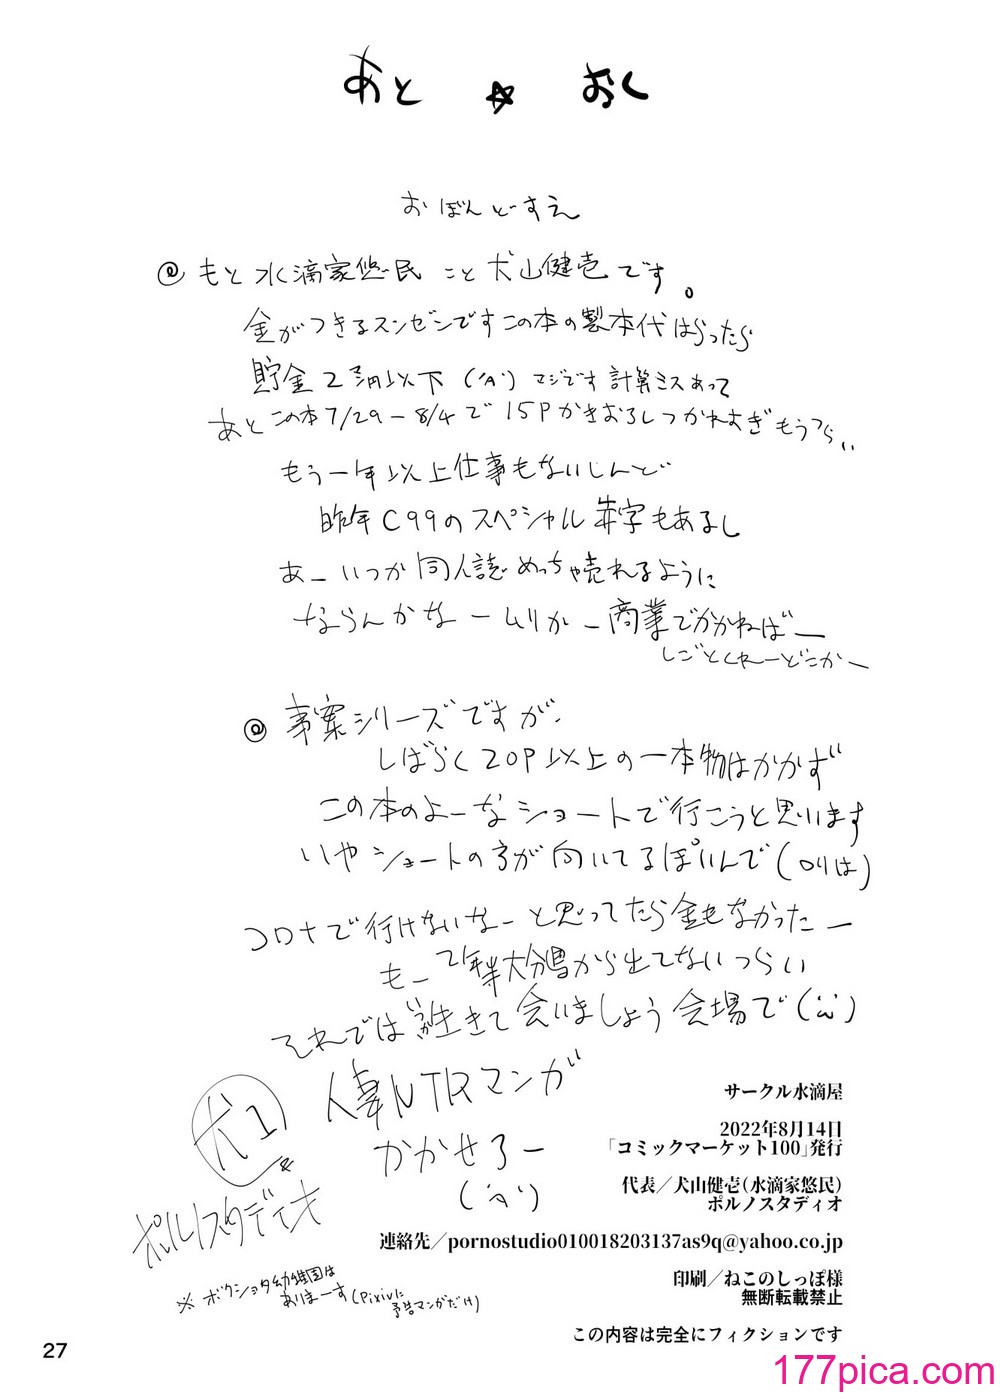 あと ☆ おく
おぼんどすえ
@ もと水滴家悠民 こと 犬山健壱です。
金がつきるスンゼンですこの本の製本代はらったら
貯金2万円以下 マジです計算ミスあって
あとこの本7/29-8/4で15Pかきおろしつかれすぎもうつらい
もう一年以上仕事もないしんど
昨年C99のスペシャル赤字もあるし
あーいつか同人誌めっちゃ売れるように
ならんかなームリかー商業でかかねばー
しごとくれーどこかー
@ 事案シリーズですが、
しばらく20P以上の一本物はかかず
この本のよーなショートで行こうと思います
いやショートの方が向いてるぽいんで(ロリは)
コロナで行けないなーと思ってたら金もなかったー
もー2年半大分県から出てないつらい
それではいつか生きて会いましょう会場で
人妻NTRマンガ
かかせろー
犬1
ポルノスタディオ
※ボクショタ幼稚園は
ありまーす(Pixivに
予告マンガだけ)
サークル水滴屋
2022年8月14日
「コミックマーケット100」発行
代表／犬山健壱(水滴家悠民)
ポルノスタディオ
連絡先／pornostudio010018203137as9q@yahoo.co.jp
印刷／ねこのしっぽ様
無断転載禁止
この内容は完全にフィクションです
27
177pica.com